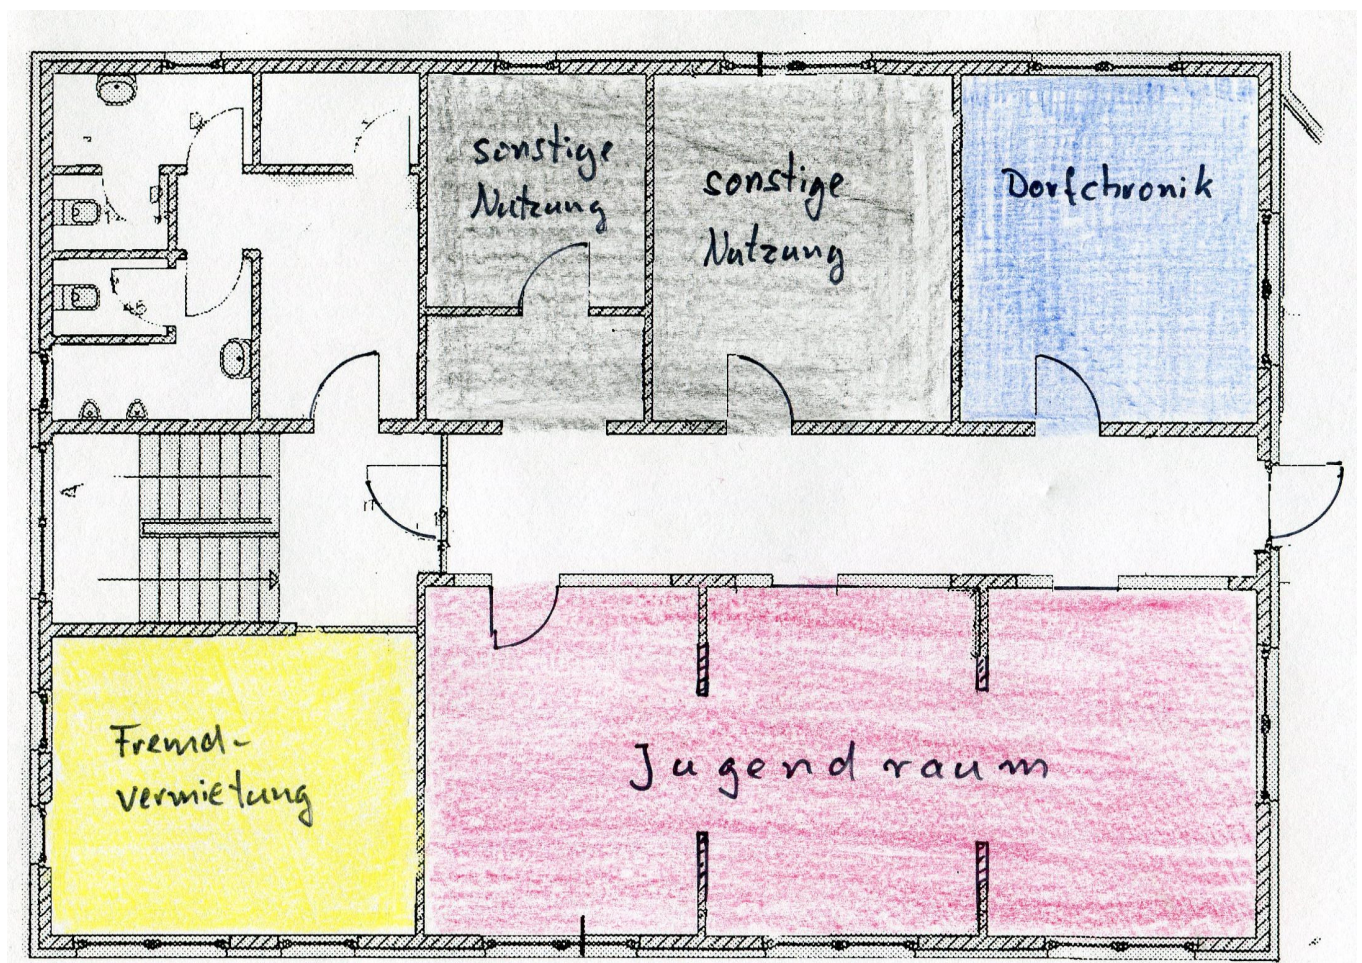 sonstige
Nutzung
sonstige
Nutzung
Dorfchronik
A
Fremd-
vermietung
Jugendraum